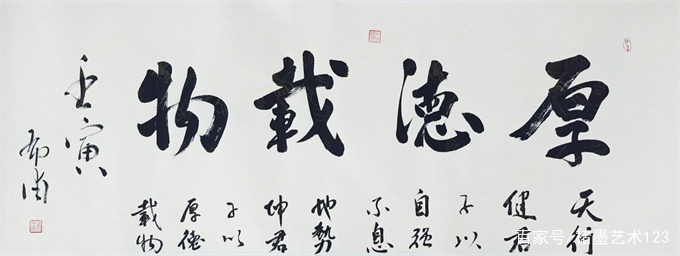 厚德載物
天行
健君
子以
自强
不息
地勢
坤君
子以
厚德
載物
壬寅
百家号/老墨艺术123